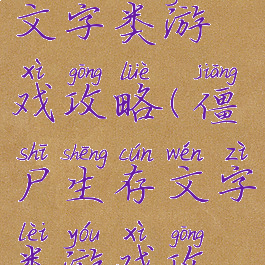 文字类游
xì gōng lüè jiāng
戏攻略(僵
shī shēng cún wén zì
尸生存文字
lèi yóu xì gōng
类游戏攻